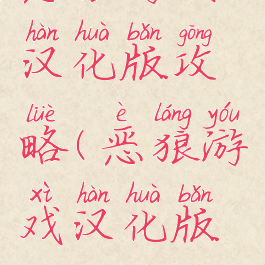 hàn huà bǎn gōng
汉化版攻
lüè è láng yóu
略(恶狼游
xì hàn huà bǎn
戏汉化版